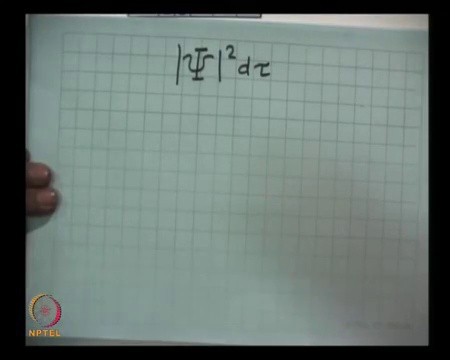 |Ψ|² dτ
NPTEL